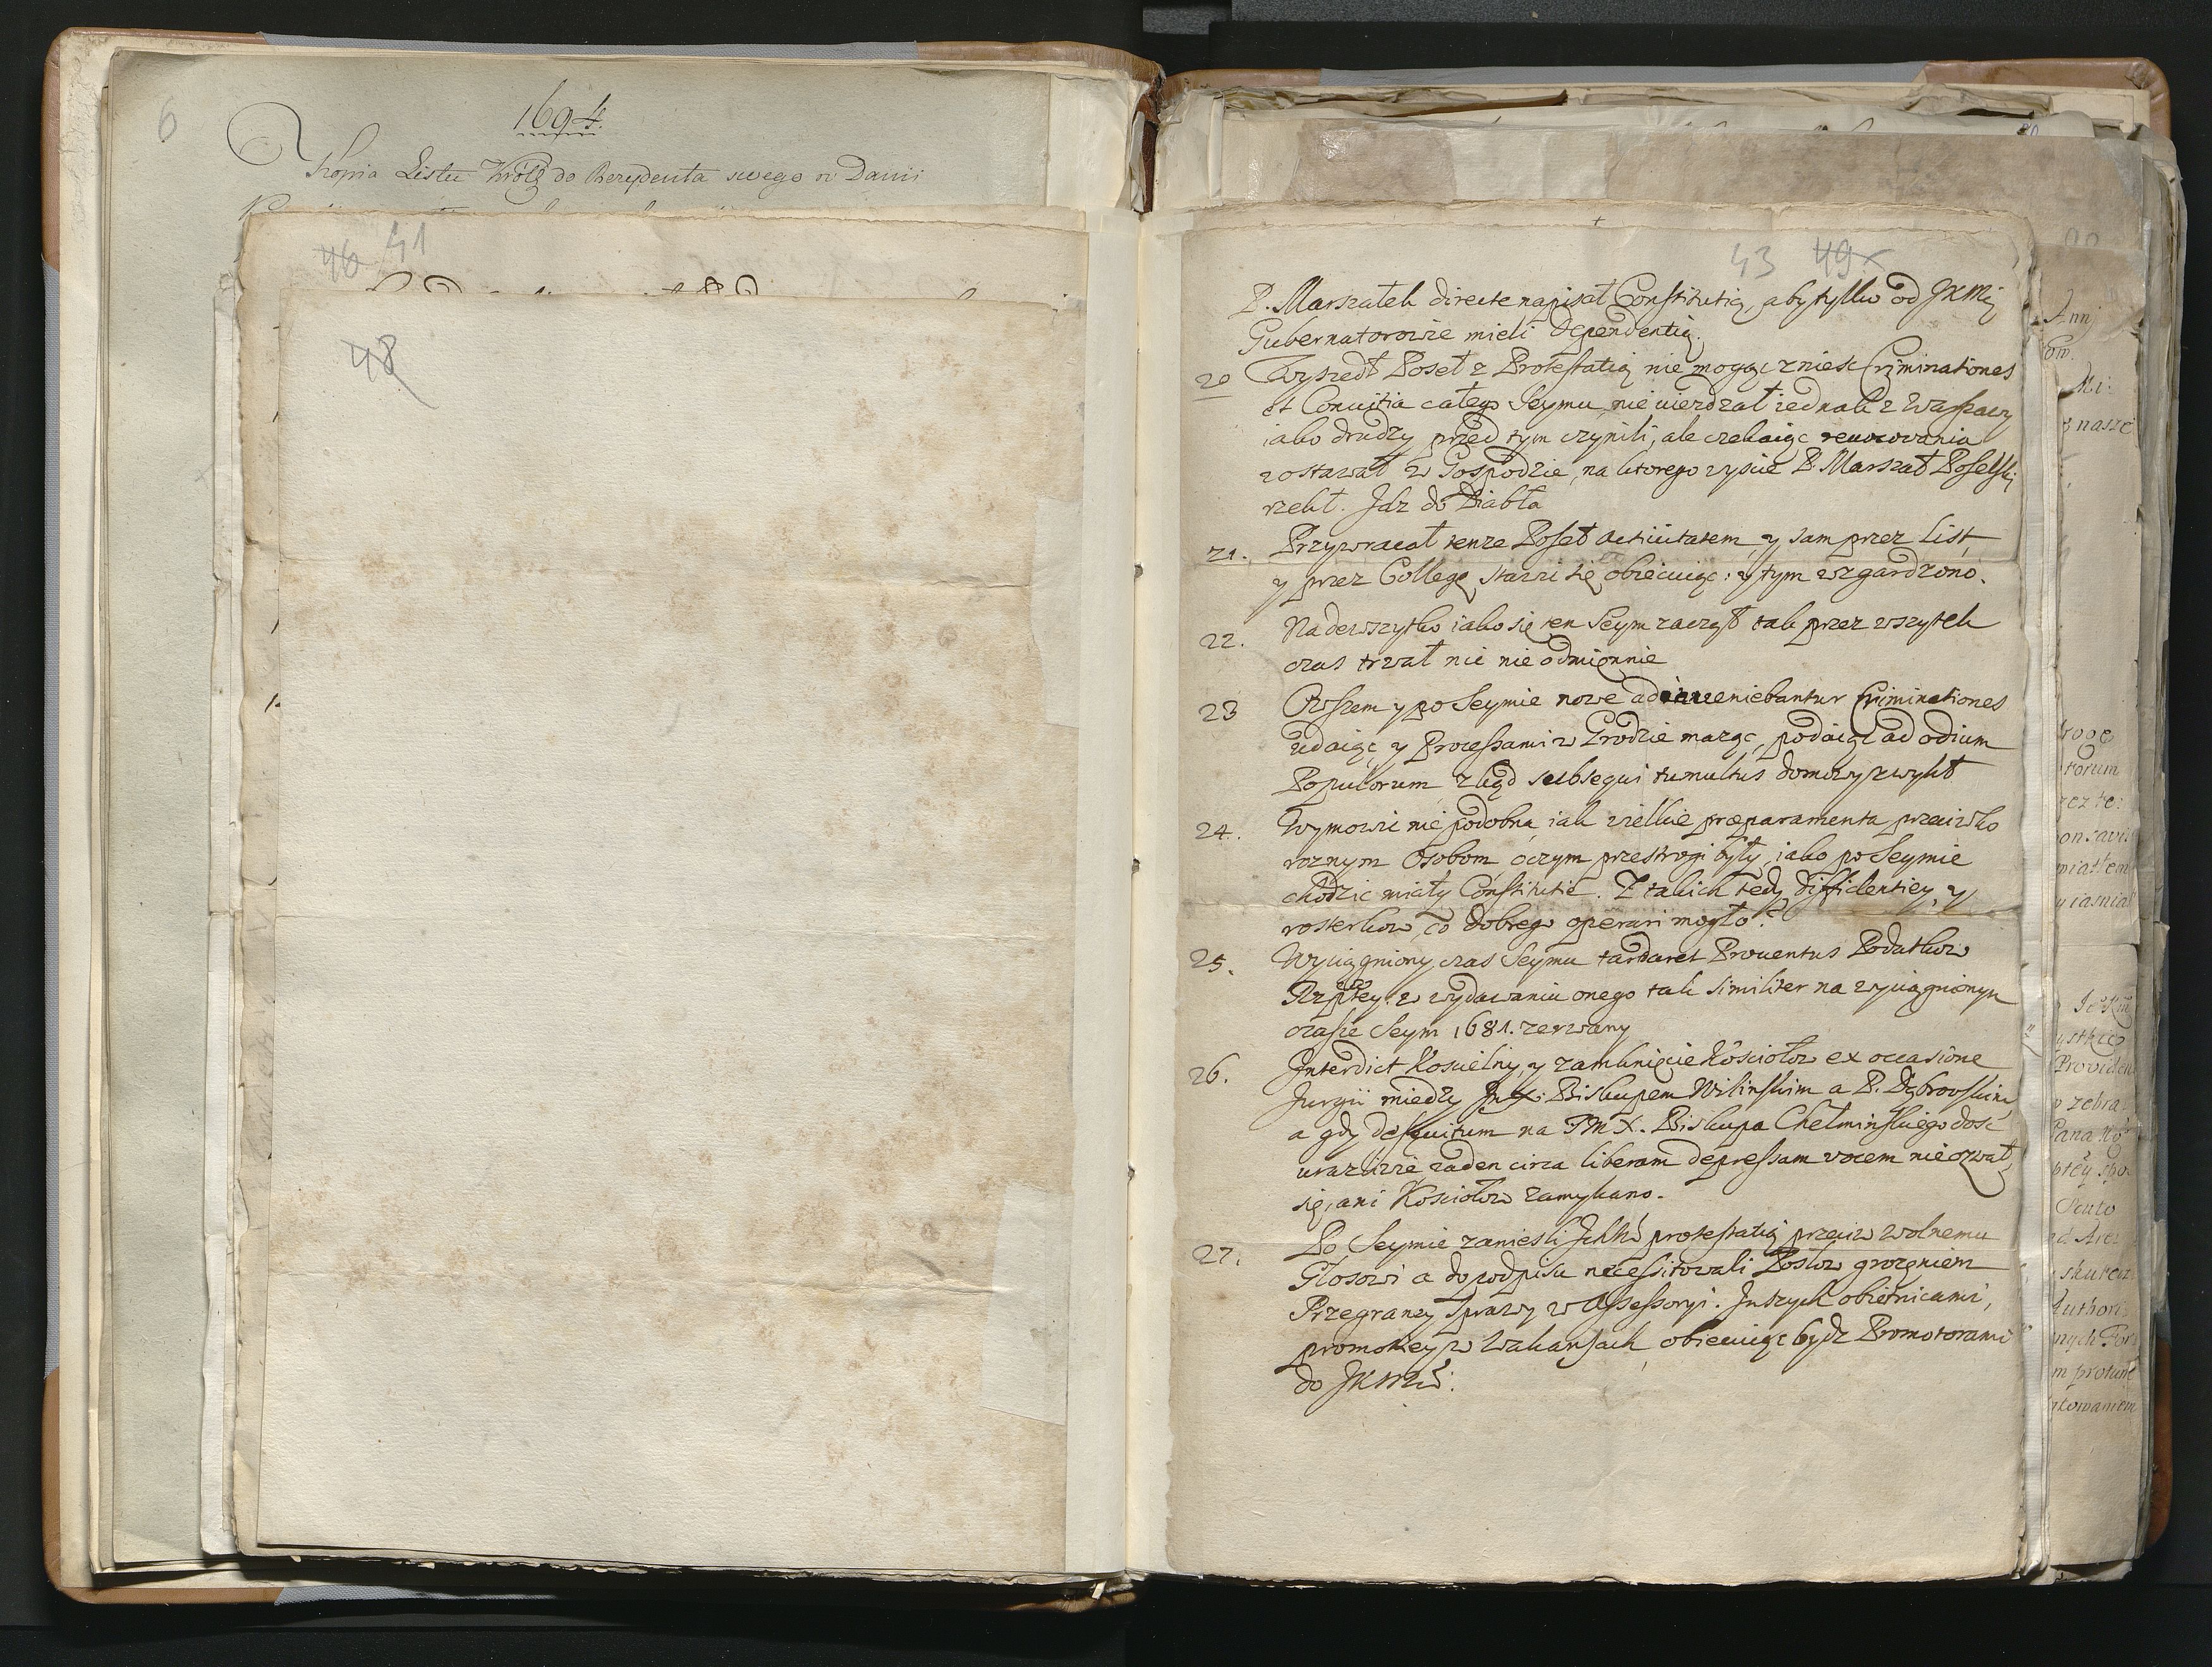 6
1694.
Kopia Listu Króla do Rezydenta swego w Danii
46 41
48
43 49
P. Marszałek directe napisał Constitutią, aby tylko od JKMci
Gubernatorowie mieli Dependentią.
20 Wyszedł Poseł z Protestatią nie mogąc znieść Criminationes
et Convitia całego Seymu, nie uiezdzał iednak z Warszawy
iako drudzy przed tym czynili, ale czekaiąc revocowania
zostawał w Gospodzie, na ktorego zyście P. Marszał Poselski
rzekł. Jdz do Diabła
21. Przywracał tenze Poseł activitatem, y sam przez List,
y przez Collegę stawić się obiecuiąc: y tym wzgardzono.
22. Nadewszytko iako się ten Seym zaczął tak przez wszytek
czas trwał nic nieodmiennie
23 Owszem y po Seymie nowe adinveniebantur Criminationes
udaiąc, y Processami w Grodzie mażąc, podaiąc ad odium
Populorum, zkąd subsequi tumultus domowy zwykł
24. Wymowić nie podobna, iak wielkie præparamenta przeciwko
roznym Osobom, o czym przestrogi były, iako po Seymie
chodzić miały Constitutie. Z takich tedy diffidentiey, y
rosterkow, co dobrego operari mogło?
25. Wyciągniony czas Seymu tardaret Proventus Podatkow
Rzptey. w wydawaniu onego tak similiter na wyciągnionym
czasie Seym 1681. zerwany
26. Jnterdict Koscielny, y zamknięcie Kościołow ex occasione
Jurgii miedzy JmX. Biskupem Wilinskim a P. Dąbrowskim,
a gdy desęuitum na JMX. Biskupa Chełminskiego dosc
urazliwie zaden circa liberam depressam vocem nie ozwał
się, ani Kosciołow zamykano.
27. Po Seymie zaniesli Jchmć protestatią przeciw wolnemu
Głosowi a do podpisu necessitowali Posłow grozeniem
Przegraney Sprawy w Assessoryi. Jnszych obietnicami,
promotiey w Wakansach obiecuiąc bydz Promotorami
do JKMći.